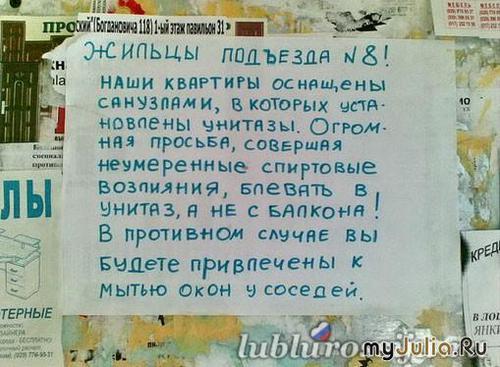 ПРО
ский" (Богдановича 118) 1-ый этаж павильон 31»
ЖИЛЬЦЫ ПОДЪЕЗДА N8!
НАШИ КВАРТИРЫ ОСНАЩЕНЫ
САНУЗЛАМИ, В КОТОРЫХ УСТА-
НОВЛЕНЫ УНИТАЗЫ. ОГРОМ-
НАЯ ПРОСЬБА, СОВЕРШАЯ
НЕУМЕРЕННЫЕ СПИРТОВЫЕ
ВОЗЛИЯНИЯ, БЛЕВАТЬ В
УНИТАЗ, А НЕ С БАЛКОНА!
В ПРОТИВНОМ СЛУЧАЕ ВЫ
БУДЕТЕ ПРИВЛЕЧЕНЫ К
МЫТЬЮ ОКОН У СОСЕДЕЙ.
ЛЫ
ТЕРНЫЕ
КРЕД
В ЛО
ЯНКИ
myJulia.Ru